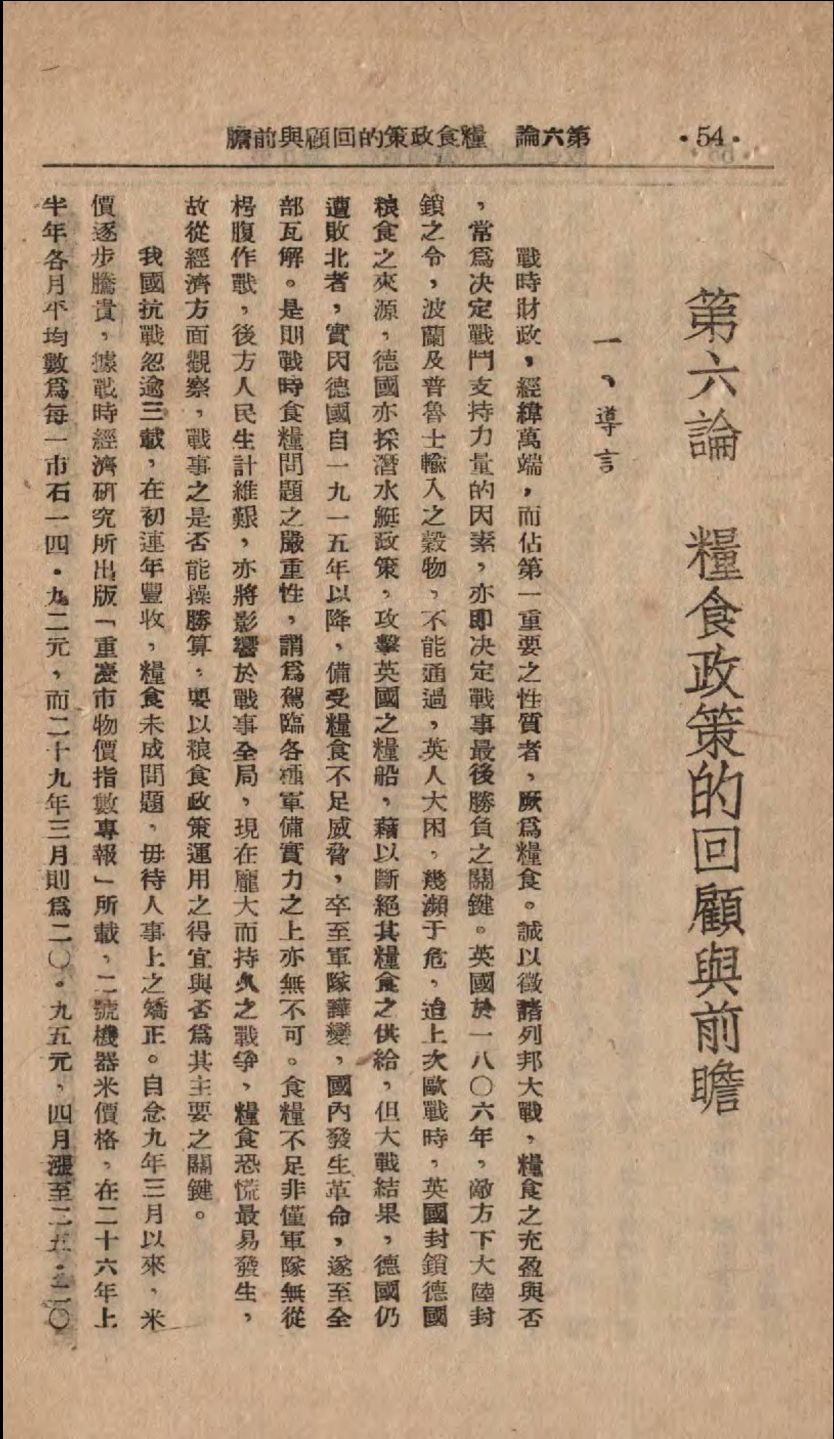 ·54·
第六論　糧食政策的回顧與前瞻
第六論　糧食政策的回顧與前瞻
一、導言
戰時財政，經緯萬端，而佔第一重要之性質者，厥爲糧食。誠以徵諸列邦大戰，糧食之充盈與否
，常爲决定戰鬥支持力量的因素，亦即决定戰事最後勝負之關鍵。英國於一八〇六年，敵方下大陸封
鎖之令，波蘭及普魯士輸入之穀物，不能通過，英人大困，幾瀕于危，迨上次歐戰時，英國封鎖德國
粮食之來源，德國亦採潛水艇政策，攻擊英國之糧船，藉以斷絕其糧食之供給，但大戰結果，德國仍
遭敗北者，實因德國自一九一五年以降，備受糧食不足威脅，卒至軍隊譁變，國內發生革命，遂至全
部瓦解。是則戰時食糧問題之嚴重性，謂爲駕臨各種軍備實力之上亦無不可。食糧不足非僅軍隊無從
枵腹作戰，後方人民生計維艱，亦將影響於戰事全局，現在龐大而持久之戰爭，糧食恐慌最易發生，
故從經濟方面觀察，戰事之是否能操勝算，要以粮食政策運用之得宜與否爲其主要之關鍵。
我國抗戰忽逾三載，在初連年豐收，糧食未成問題，毋待人事上之矯正。自念九年三月以來，米
價逐步騰貴，據戰時經濟研究所出版「重慶市物價指數專報」所載，二號機器米價格，在二十六年上
半年各月平均數爲每一市石一四·九二元，而二十九年三月則爲二〇·九五元，四月漲至二五·二〇